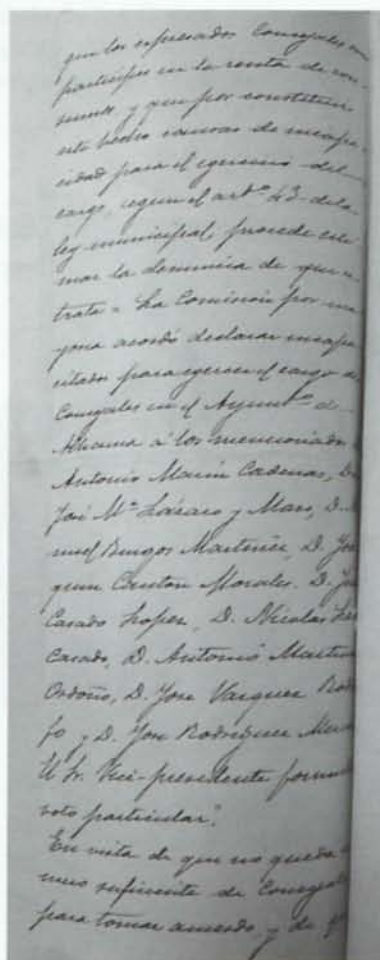 que los espresados Concejales son
participes en la renta de con-
sumos y que por constituir
este hecho causas de incapa-
cidad para el egercicio del
cargo, segun el artº 43 de la
ley municipal, procede esti-
mar la denuncia de que se
trata = La Comision por ma-
yoria acordó declarar incapa-
citados para egercer el cargo de
Concejales en el Ayuntº de
Alhama á los mencionados
Antonio Marin Cadenas, D.
José Mª Lázaro y Maro, D.
nuel Burgos Martinez, D. Joa
quin Canton Morales. D. José
Casado Lopez, D. Nicolas
Casado, D. Antonio Martin
Ordoño, D. Jose Vazquez
fo y D. Jose Rodriguez
El Sr. Vice-presidente formuló
voto particular".
En vista de que no queda
mero suficiente de Concejales
para tomar acuerdo y de